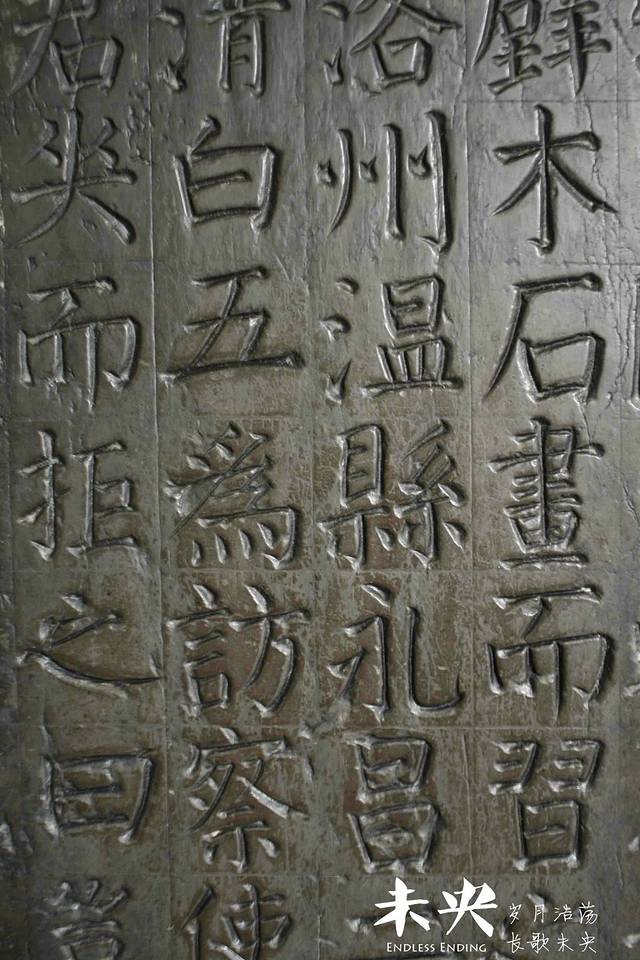 壁木石畫而習
洛州温縣永昌二
清白五為訪察使
右夾而拒之曰
未央
ENDLESS ENDING
岁月浩荡
长歌未央